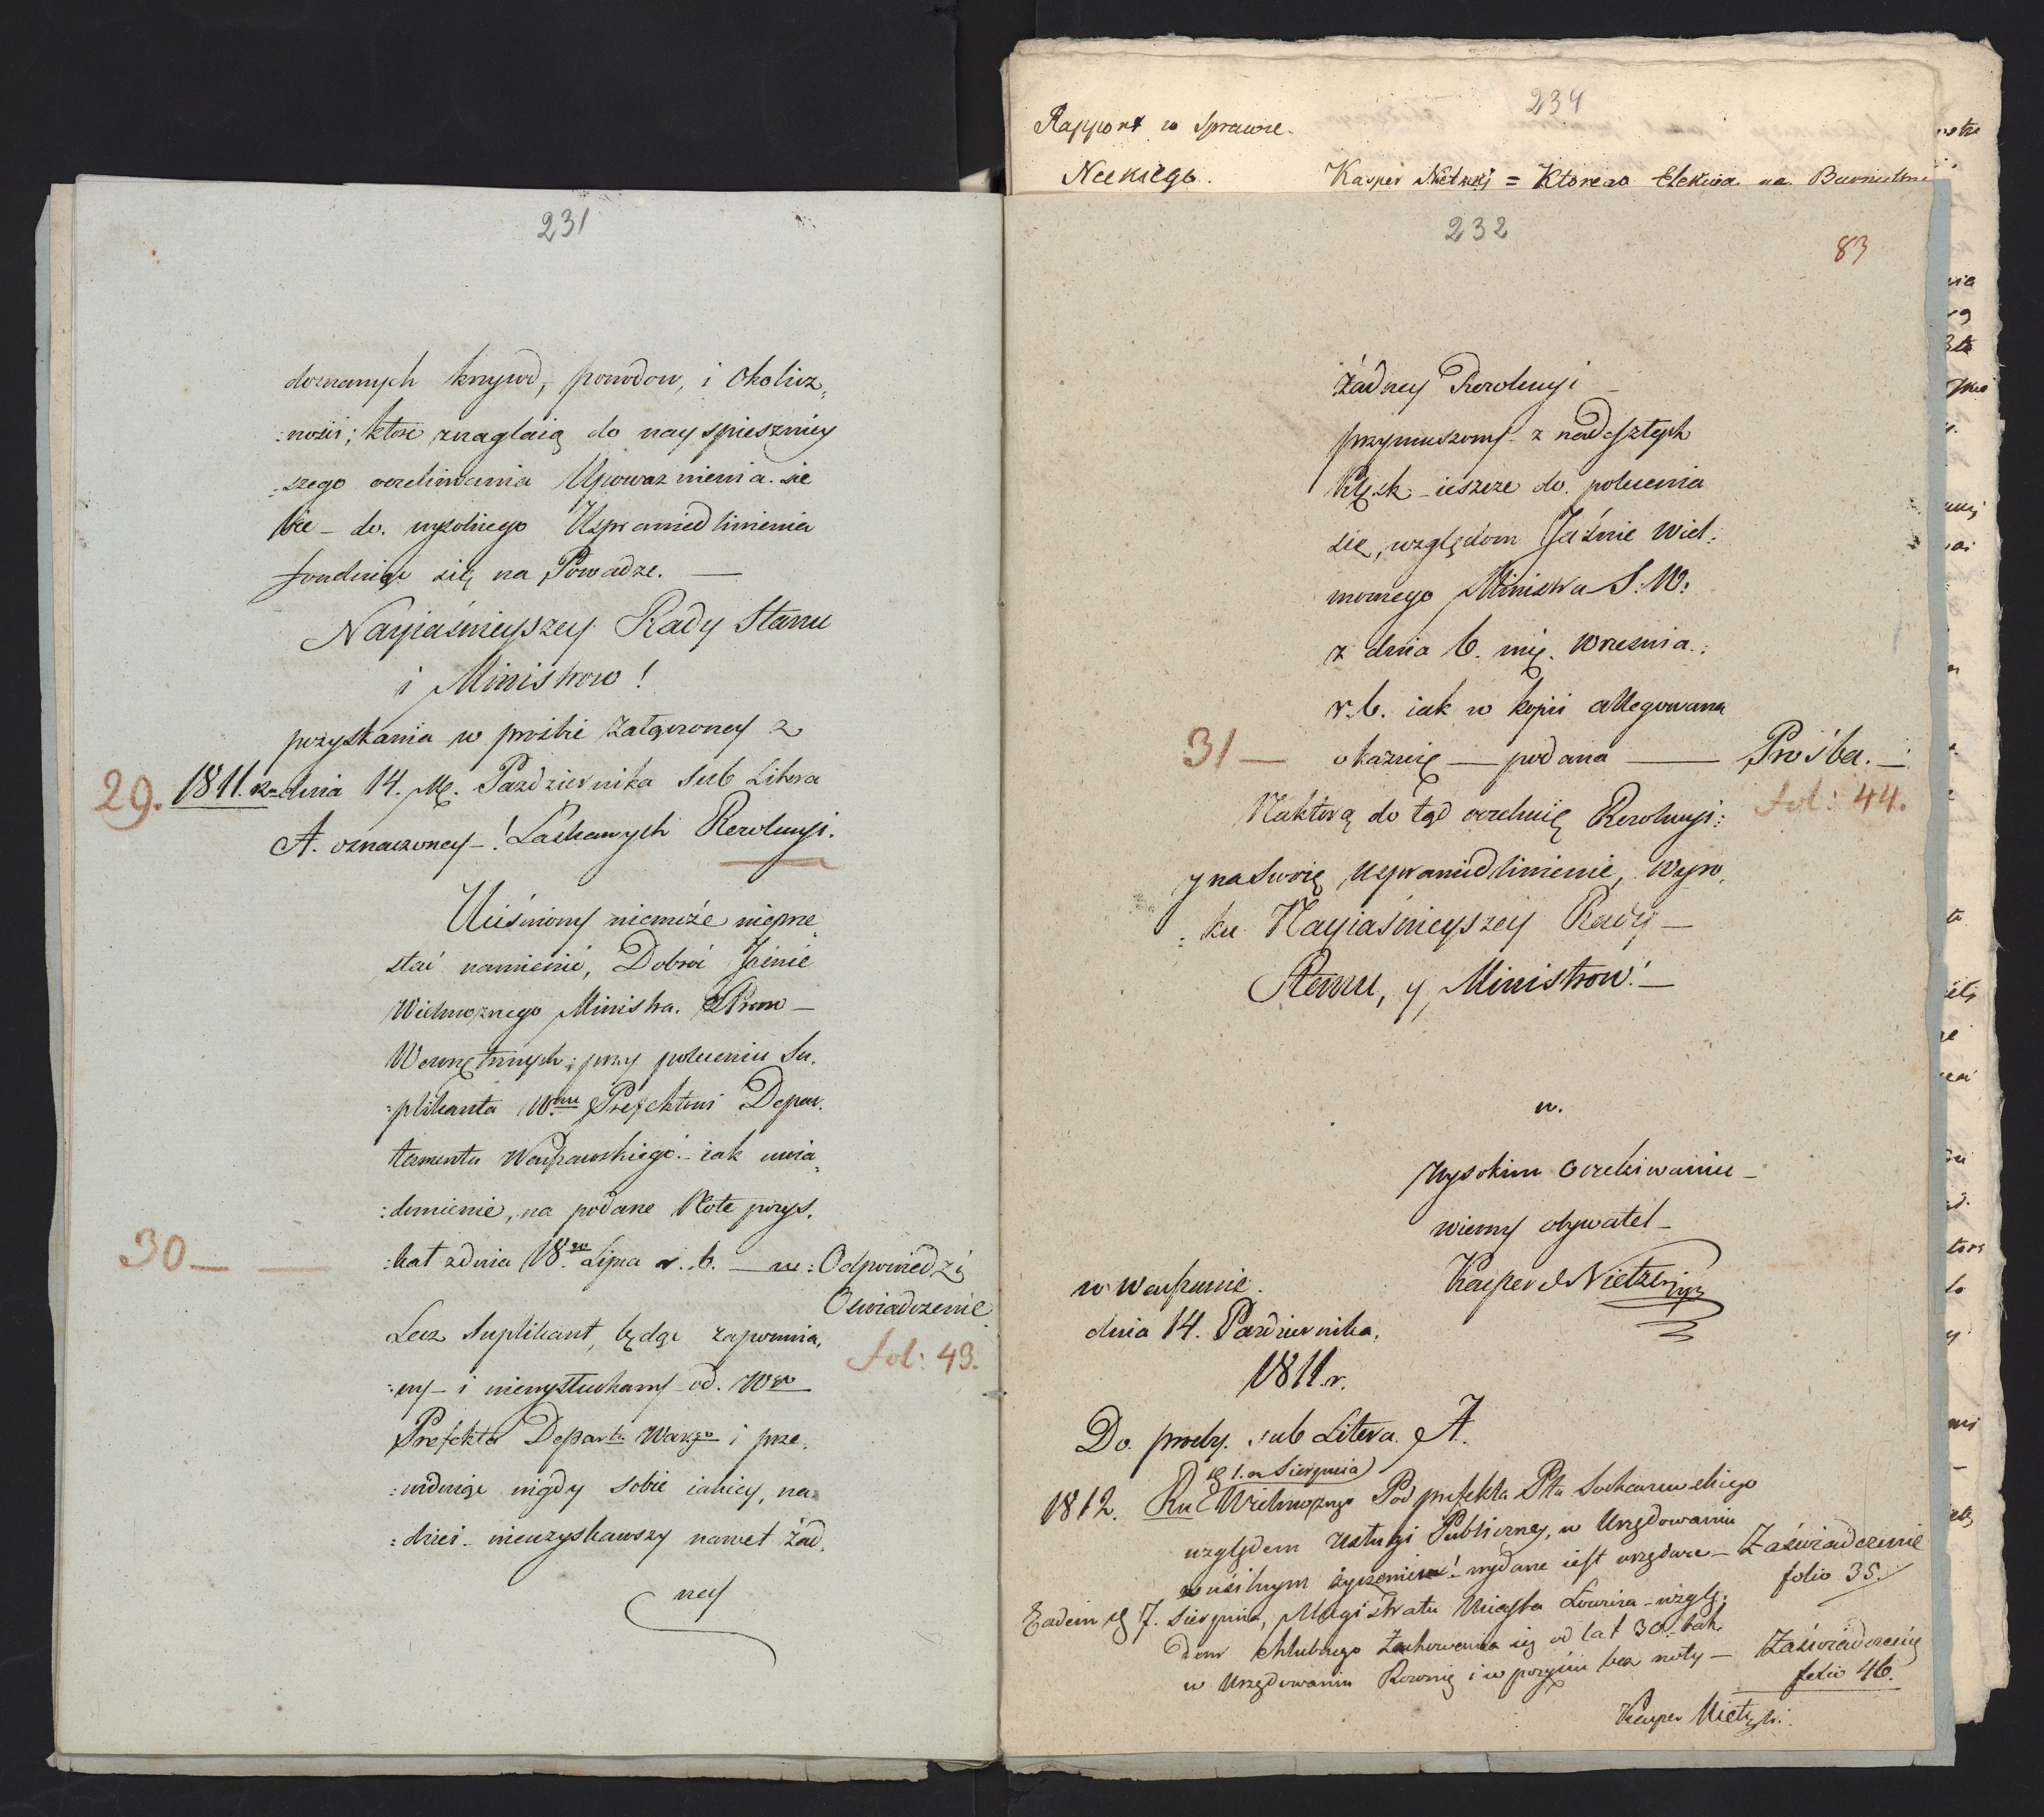 231
doznanych krzywd, powodow, i Okolicz„
:nosci; ktore znaglaią do nayspieszniey
:szego oczekiwania Upoważnienia. sie
bie – do. wysokiego Usprawiedliwienia
funduiąc się na Powadze. —
Nayiaśnieyszey Rady Stanu
i Ministrow!
pozyskania w prośbie załączoney z
29. 1811. r. dnia 14. M. Pazdziernika Sub Litera
A. oznaczoney –! Łaskawych Rezolucyi.
Uciśniony niemoże nieprze„
stać namienić, Dobroć Jaśnie
Wielmożnego Ministra. Spraw —
Wewnętrznych; przy poleceniu Su„
:plikanta W.mu Prefektowi Depar„
tamentu Warszawskiego. – iak uwia„
:domienie, na podane Note pozys„
30 — — :kał z dnia 18.go Lipca r. b. — w: Odpowiedzi
Oświadczenie
Lecz Suplikant, będąc zapomnia„
fol: 43.
:ny – i niewysłuchany – od. Wgo
Prefekta Departu Warsgo i prze„
:widuiąc nigdy sobie iakiey, na„
:dziei – nieuzyskawszy nawet żad„
ney
234
Rapport w Sprawie.
Neckiego.
Kasper Nietzski = Ktorego Elekcia na Burmistrza
232
83
żadney Rezolucyi –
przymuszony – z nadeszłych
ieszcze do. polecenia
się, względom Jaśnie Wiel„
możnego Ministra S: W:
z dnia 6. mię. Wrzesnia.:
r. b. iak w kopii allegowana
31 — okazuię — podana — Prośba. —:
fol: 44.
Naktorą do tąd oczekuię Rezolucyi:
y na Swoię Usprawiedliwienie, Wyro„
:ku Nayiaśnieyszey Rady —
Stanu, y Ministrow! —
w.
wysokim Oczekiwaniu —
wierny obywatel –
Kasper Nietzski
w Warszawie.
dnia 14. Pazdziernika.
1811. r.
Do. prosby. sub Litera. A.
d 1. a Sierpnia
1812. Ku Wielmożnego Podprefekta Ptu Sochaczewskiego
względem Usługi Publiczney, w Urzędowaniu
usilnym życzeniem! – wydane iest urzędowe – Zaświadczenie
folio 35.
Eadem d 7. Sierpnia, Magistratu Miasta Łowicza – wzglę„
dem Chlubnego Zachowania się od lat 30. tak
w Urzędowaniu Rownię i w pożyciu bez noty – Zaświadczenie
folio 46.
Kasper Nietzski.